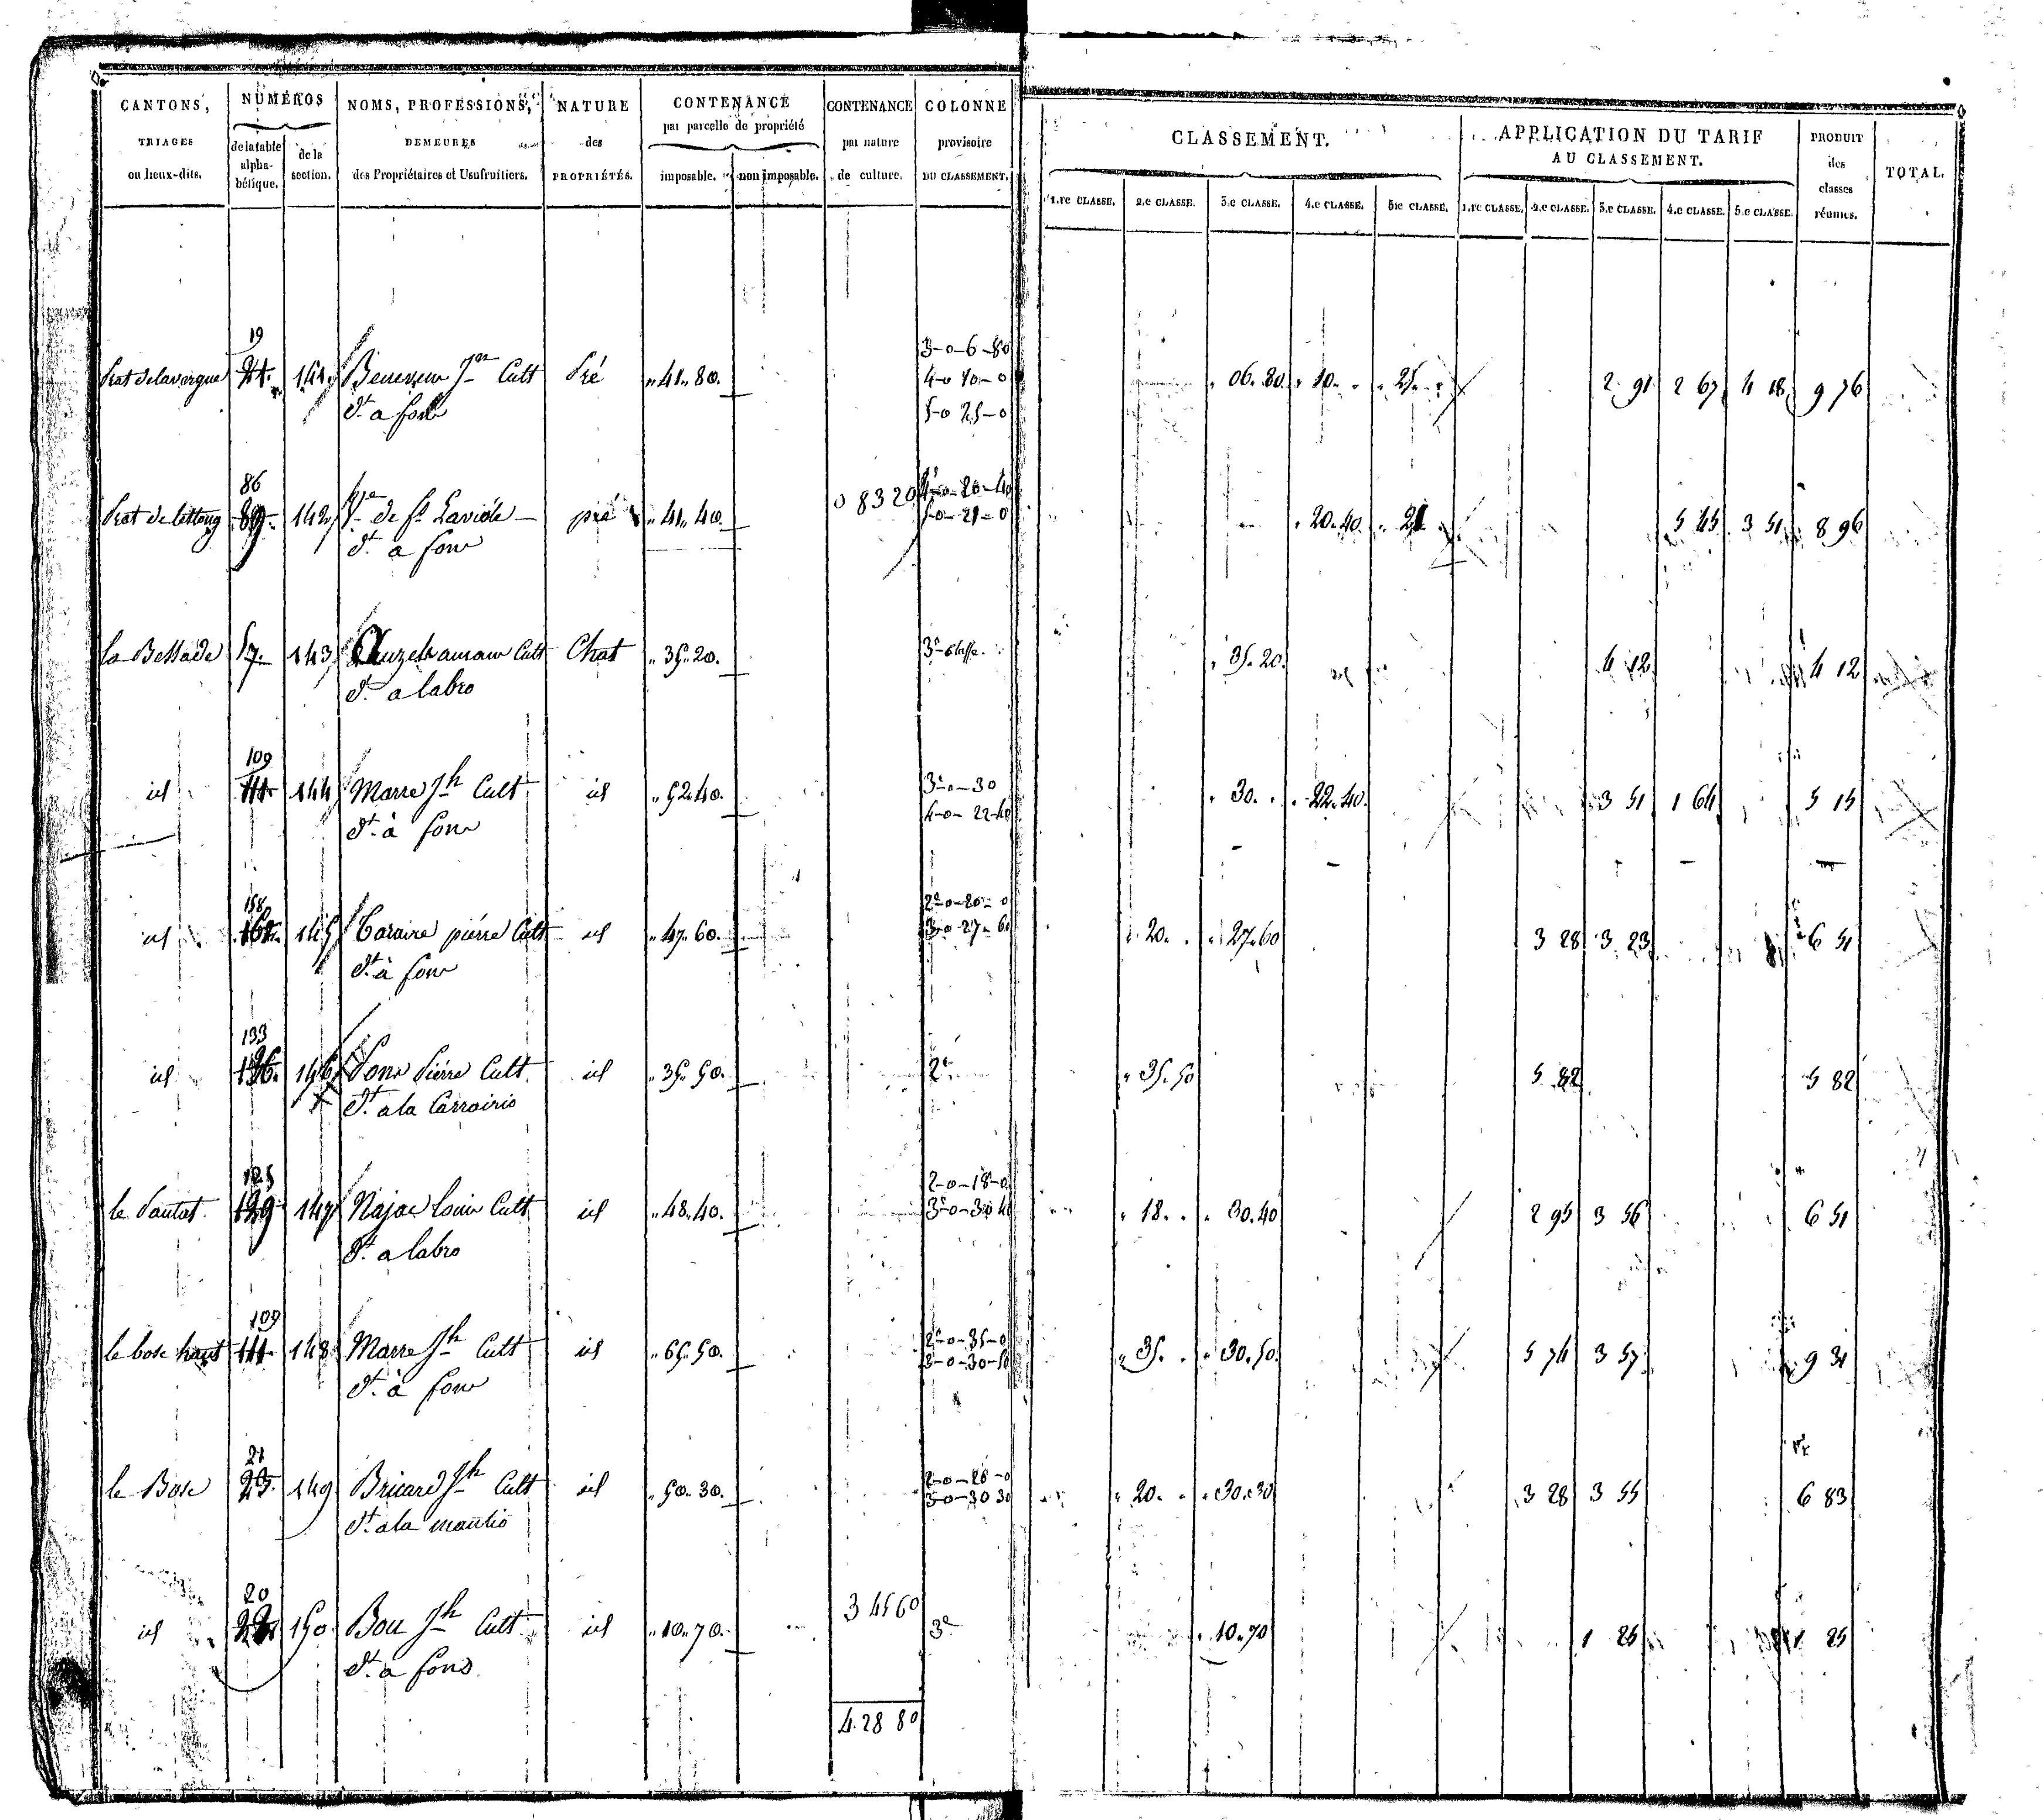 CANTONS, TRIAGES ou lieux-dits.
NUMÉROS
de la table alphabétique.
de la section.
NOMS, PROFESSIONS, DEMEURES des Propriétaires et Usufruitiers.
NATURE des PROPRIÉTÉS.
CONTENANCE par parcelle de propriété
imposable.
non imposable.
CONTENANCE par nature de culture.
COLONNE provisoire DU CLASSEMENT.
CLASSEMENT.
1.re CLASSE. 2.e CLASSE. 3.e CLASSE. 4.e CLASSE. 5.e CLASSE.
APPLICATION DU TARIF AU CLASSEMENT.
1.re CLASSE. 2.e CLASSE. 3.e CLASSE. 4.e CLASSE. 5.e CLASSE.
PRODUIT des classes réunies.
TOTAL.
19
3-0-6-80
Prat delavergue 21. 141 Jn Cult Pré „41„80. 4-0 10-0 06.80 10. 25. 2 91 2 67 4 18 9 76
dt a fons 5-0 25-0
86
0 83 20 4e-0-20-40
Prat de 89. 142 Ve de pré „41„40. 5-0-21-0 20.40. 21. 5 45 3 51 8 96
dt a fons
la Bessade 57. 143 Cult Chat „35„20. 3e classe. 35.20. 4 12 4 12
dt a labro
109
3e-0-30
id 111 144 Marre Jh Cult id „52„40. 30. 22.40. 3 51 1 64 5 15
dt à fons 4-0-22-40
158
2e-0-20-0
id 161. 145 pierre Cult id „47„60. 3-0-27-60 20. 27.60 3 28 3 23 6 51
dt à fons
133
id 136. 146 Pons Pierre Cult id „35„50. 2e 35.50 5 82 5 82
dt a la Carrairie
125
2-0-18-0
le Pautut 129 147 Najac louis Cult id „48„40. 3e-0-30 40 18. 30.40 2 95 3 56 6 51
dt a labro
109
2e-0-35-0
le bosc haut 111 148 Marre Jh Cult id „65„50. 3-0-30-50 35. 30.50. 5 74 3 57 9 31
dt à fons
21
2-0-20-0
le Bosc 23. 149 Bricard Jh Cult id „50„30. 3-0-30 30 20. 30.30 3 28 3 55 6 83
dt a la
20
3 45 60
id 22 150 Bou Jh Cult id „10„70. 3e 10.70 1 25 1 25
dt a fons
4.28 80